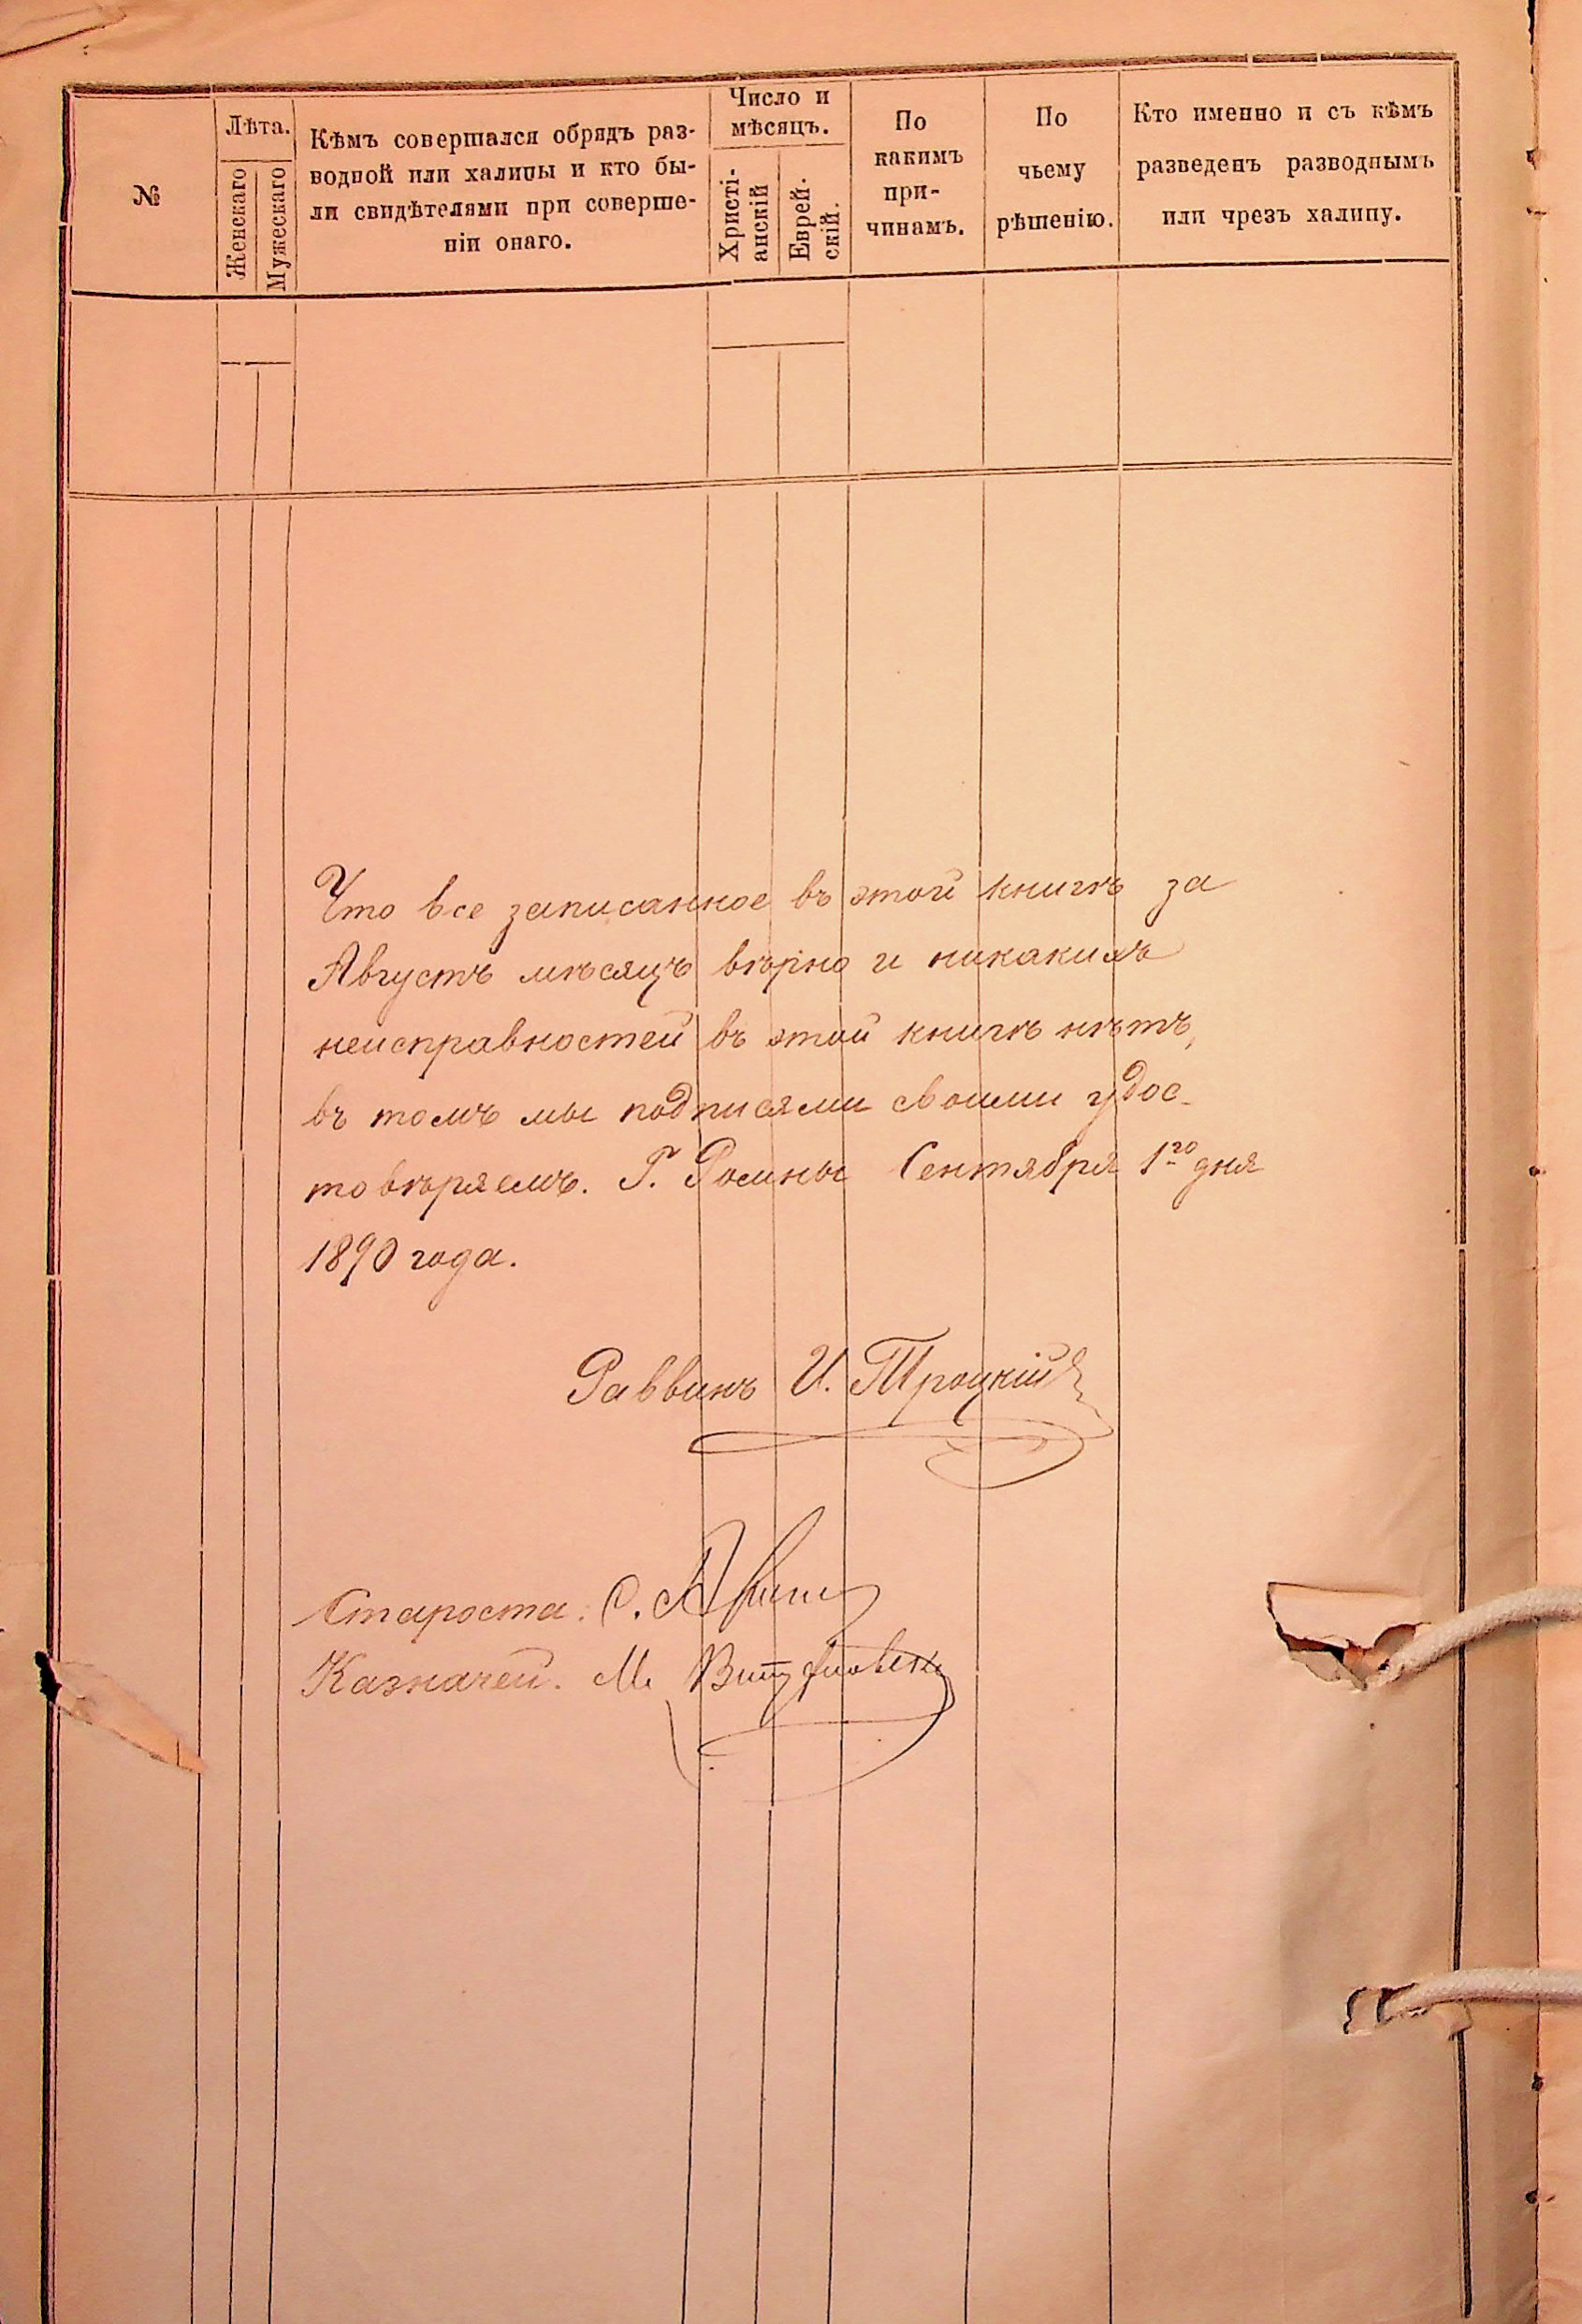 №
Лѣта.
Женскаго
Мужескаго
Кѣмъ совершался обрядъ раз-
водной или халицы и кто бы-
ли свидѣтелями при соверше-
ніи онаго.
Число и
мѣсяцъ.
Христі-
анскій
Еврей-
скій.
По
какимъ
при-
чинамъ.
По
чьему
рѣшенію.
Кто именно и съ кѣмъ
разведенъ разводнымъ
или чрезъ халицу.
Что все записанное въ этой книгѣ за
Августъ мѣсяцъ вѣрно и никакихъ
неисправностей въ этой книгѣ нѣтъ,
въ томъ мы подписями своими удос-
товѣряемъ. Г. Ромны Сентября 1го дня
1890 года.
Раввинъ И. Троцкій
Староста. С.
Казначей. М.